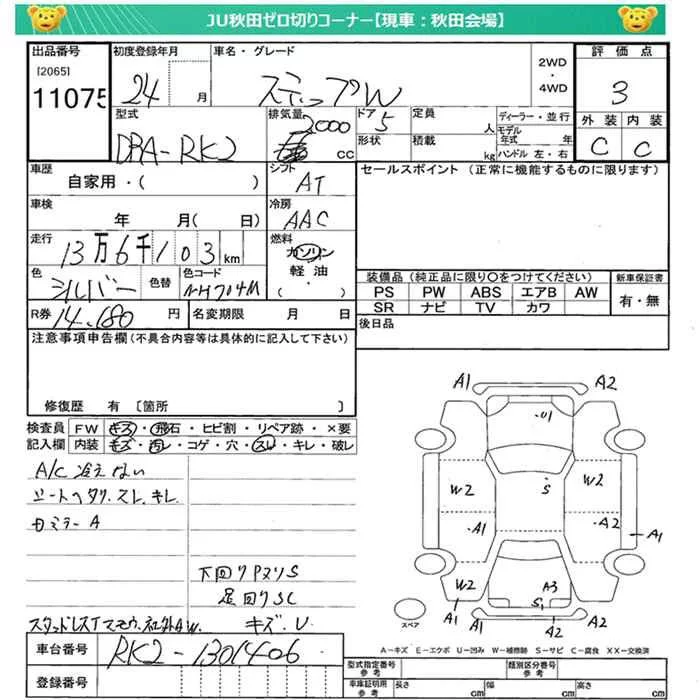 JU秋田ゼロ切りコーナー【現車:秋田会場】
出品番号 初度登録年月 車名・グレード 2WD・4WD 評価点
[2065]
11075 24 月 ステップW 3
型式 排気量 ドア 定員 ディーラー・並行 外装 内装
DBA-RK2 2000 cc 5 人 モデル年式 年 C C
形状 積載 kg ハンドル 左・右
車歴 シフト セールスポイント(正常に機能するものに限ります)
自家用・( ) AT
車検 冷房
年 月( 日) AAC
走行 燃料
13万6千103km ガソリン
軽油
( ・ )
色 色替 色コード 装備品(純正品に限り○をつけてください) 新車保証書
シルバー NH704M PS PW ABS エアB AW 有・無
SR ナビ TV カワ
R券 14,180 円 名変期限 月 日 後日品
注意事項申告欄(不具合内容等は具体的に記入して下さい)
修復歴 有 [箇所 ]
検査員 FW キズ・飛石・ヒビ割・リペア跡・×要
記入欄 内装 キズ・汚レ・コゲ・穴・スレ・キレ・破レ
A/C 冷えない
シートヘタリ、スレ、キレ
A
下回りPヌリS
足回りSC
キズ、U
A1 A2
U1
W2 S W2
A1 A2 A1
W2 A3
A1 A1 S1 A2 A2
スペア
A-キズ E-エクボ U-凹み W-補修跡 S-サビ C-腐食 XX-交換済
車台番号 RK2-1301406
登録番号
型式指定番号 参考 類別区分番号 参考
車庫証明用 参考 長さ cm 幅 cm 高さ cm